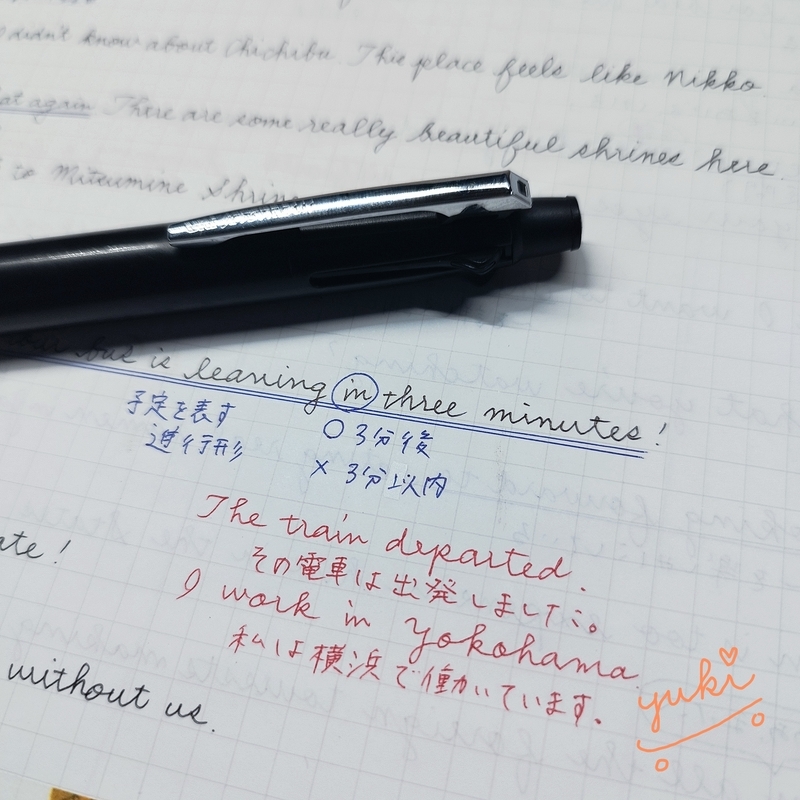 didn't know about Chichibu. This place feels like Nikko.
at again There are some really beautiful shrines here.
to Mitsumine Shrine
bus is leaving in three minutes!
予定を表す ○ 3分後
進行形 × 3分以内
The train departed.
その電車は出発しました。
ate!
I work in Yokohama
私は横浜で働いています。
without us.
yuki